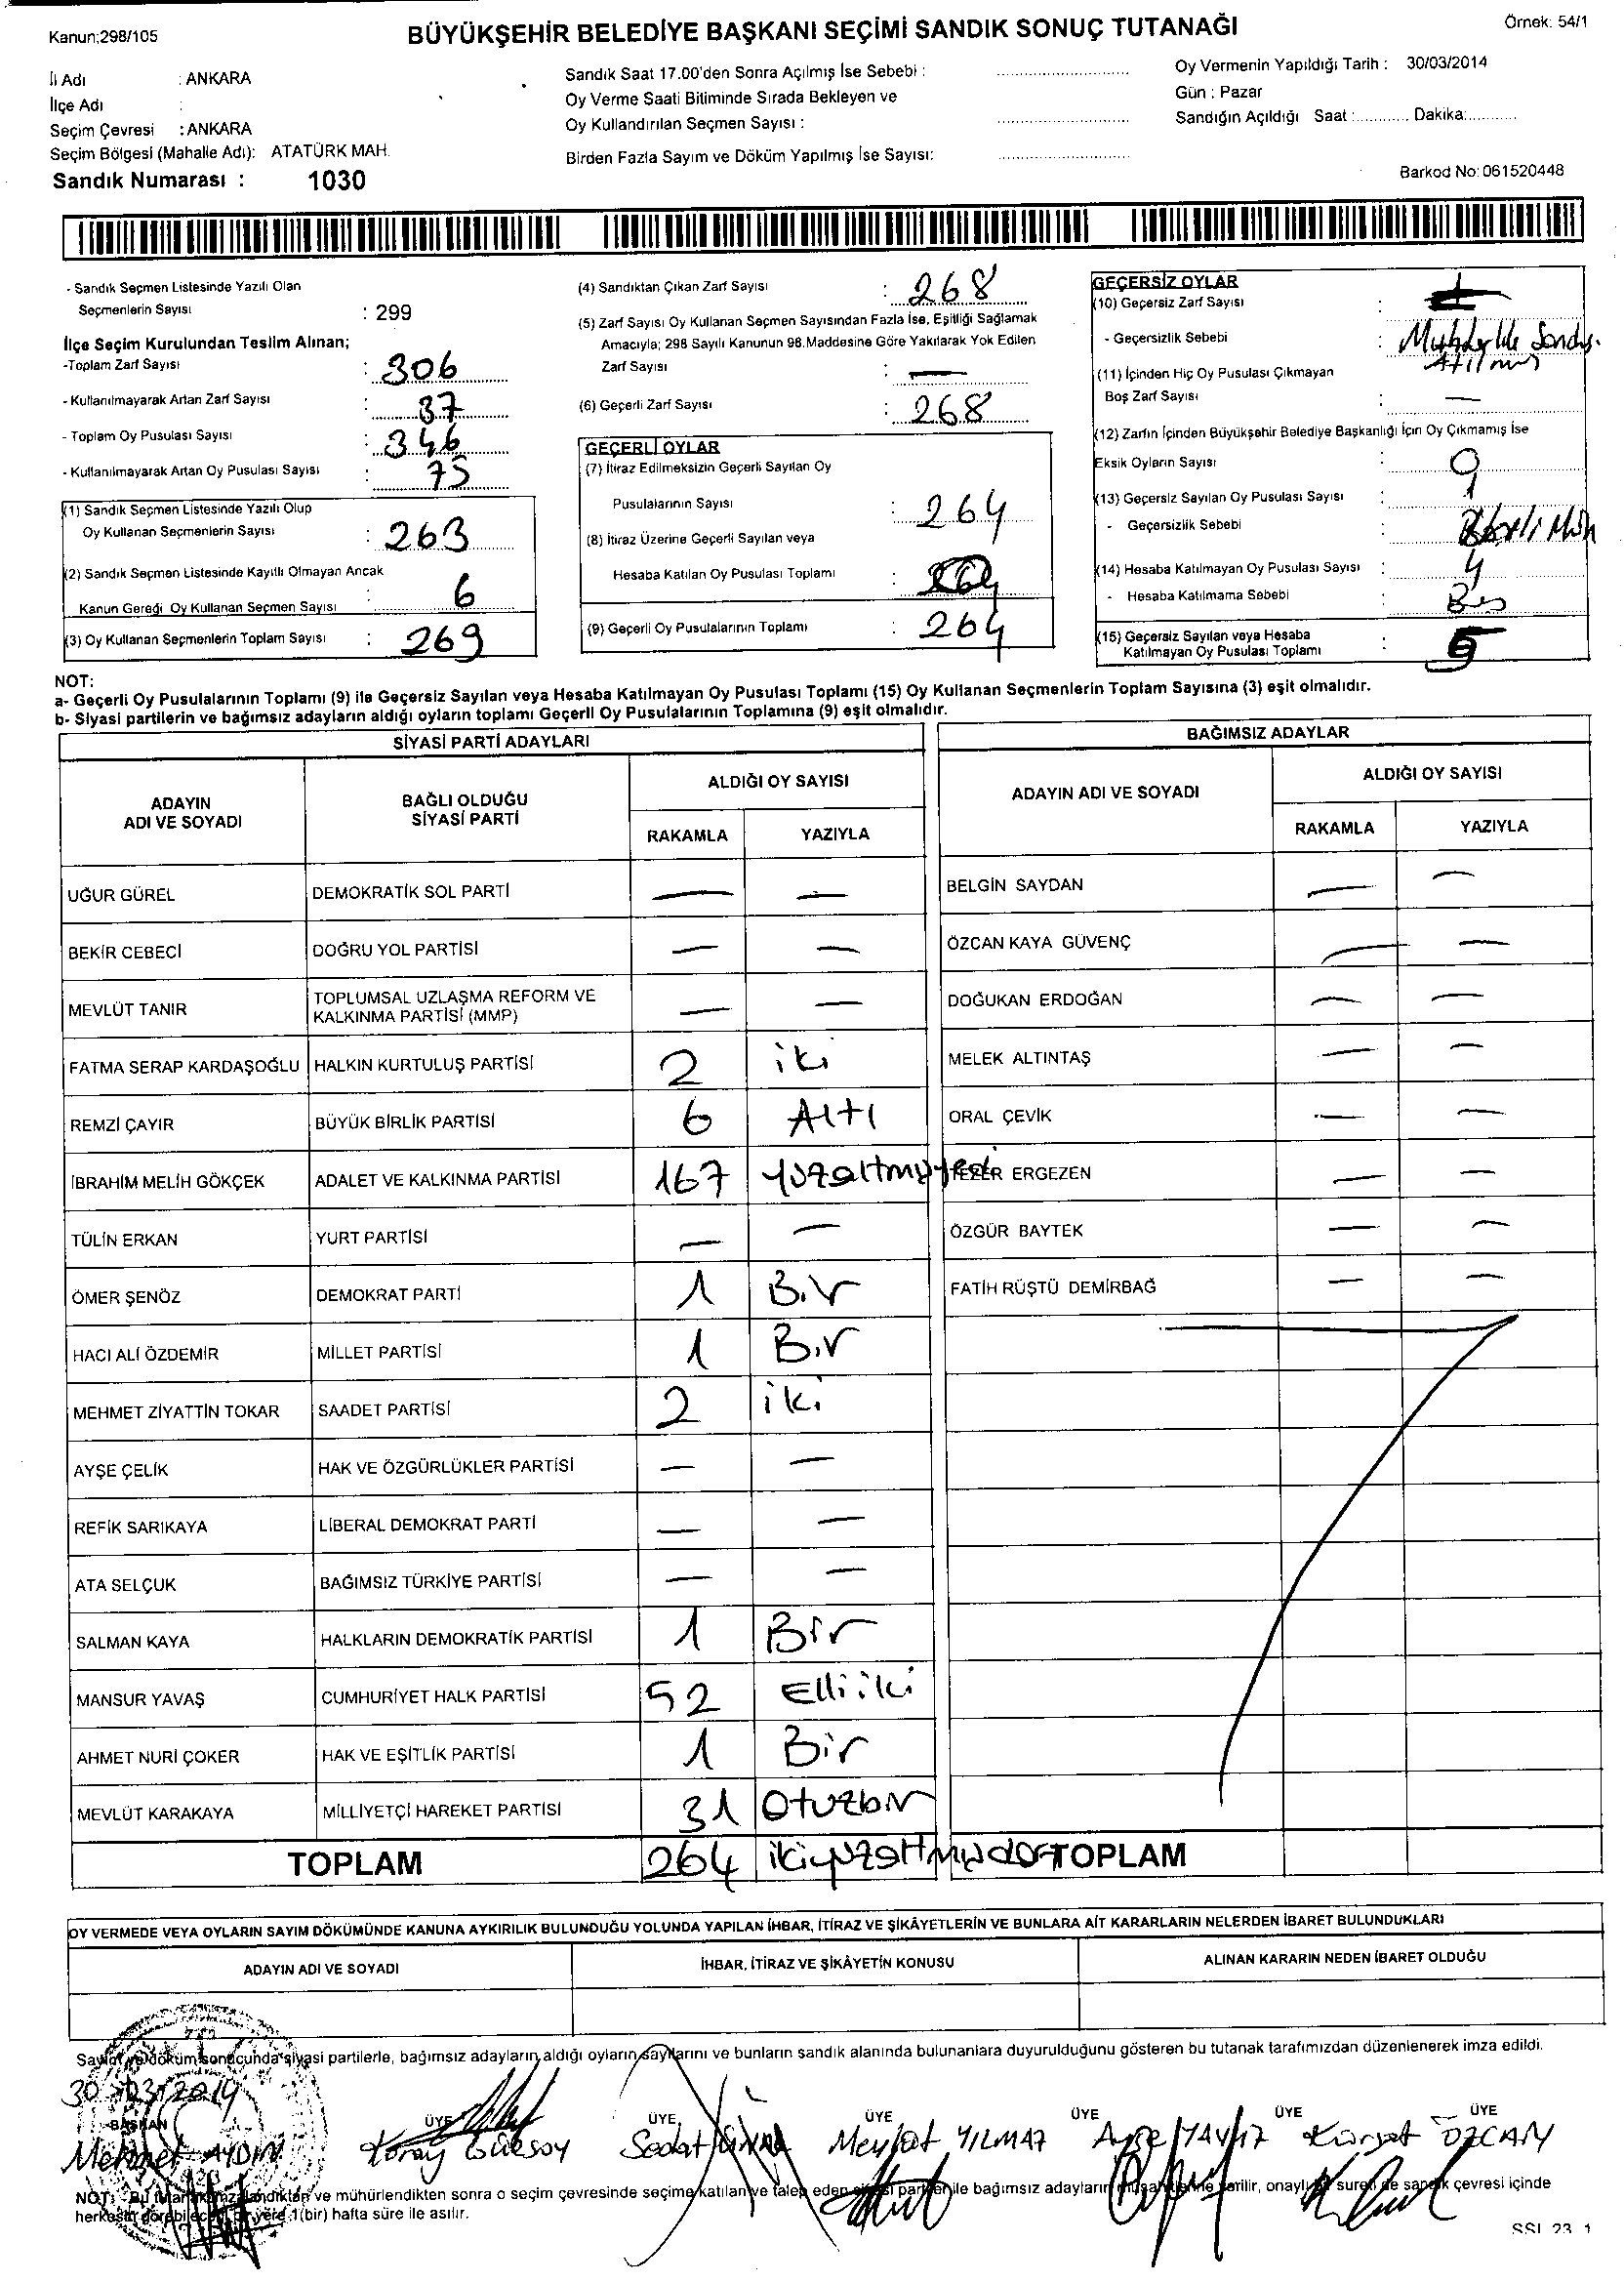 Kanun:298/105
BÜYÜKŞEHİR BELEDİYE BAŞKANI SEÇİMİ SANDIK SONUÇ TUTANAĞI
Örnek: 54/1
İl Adı : ANKARA
İlçe Adı :
Seçim Çevresi : ANKARA
Seçim Bölgesi (Mahalle Adı): ATATÜRK MAH.
Sandık Numarası : 1030
Sandık Saat 17.00'den Sonra Açılmış İse Sebebi :
Oy Verme Saati Bitiminde Sırada Bekleyen ve
Oy Kullandırılan Seçmen Sayısı :
Birden Fazla Sayım ve Döküm Yapılmış İse Sayısı:
Oy Vermenin Yapıldığı Tarih : 30/03/2014
Gün : Pazar
Sandığın Açıldığı Saat :............ Dakika:...........
Barkod No: 061520448
- Sandık Seçmen Listesinde Yazılı Olan
Seçmenlerin Sayısı : 299
İlçe Seçim Kurulundan Teslim Alınan;
-Toplam Zarf Sayısı : 306
- Kullanılmayarak Artan Zarf Sayısı : 37
- Toplam Oy Pusulası Sayısı : 346
- Kullanılmayarak Artan Oy Pusulası Sayısı : 75
(1) Sandık Seçmen Listesinde Yazılı Olup
Oy Kullanan Seçmenlerin Sayısı : 263
(2) Sandık Seçmen Listesinde Kayıtlı Olmayan Ancak
Kanun Gereği Oy Kullanan Seçmen Sayısı : 6
(3) Oy Kullanan Seçmenlerin Toplam Sayısı : 269
(4) Sandıktan Çıkan Zarf Sayısı : 268
(5) Zarf Sayısı Oy Kullanan Seçmen Sayısından Fazla İse, Eşitliği Sağlamak
Amacıyla; 298 Sayılı Kanunun 98.Maddesine Göre Yakılarak Yok Edilen
Zarf Sayısı : —
(6) Geçerli Zarf Sayısı : 268
GEÇERLİ OYLAR
(7) İtiraz Edilmeksizin Geçerli Sayılan Oy
Pusulalarının Sayısı : 264
(8) İtiraz Üzerine Geçerli Sayılan veya
Hesaba Katılan Oy Pusulası Toplamı :
(9) Geçerli Oy Pusulalarının Toplamı : 264
GEÇERSİZ OYLAR
(10) Geçersiz Zarf Sayısı :
- Geçersizlik Sebebi :
Atılmış
(11) İçinden Hiç Oy Pusulası Çıkmayan
Boş Zarf Sayısı : —
(12) Zarfın İçinden Büyükşehir Belediye Başkanlığı İçin Oy Çıkmamış İse
Eksik Oyların Sayısı :
(13) Geçersiz Sayılan Oy Pusulası Sayısı : 1
- Geçersizlik Sebebi :
(14) Hesaba Katılmayan Oy Pusulası Sayısı : 4
- Hesaba Katılmama Sebebi :
(15) Geçersiz Sayılan veya Hesaba
Katılmayan Oy Pusulası Toplamı : 5
NOT:
a- Geçerli Oy Pusulalarının Toplamı (9) ile Geçersiz Sayılan veya Hesaba Katılmayan Oy Pusulası Toplamı (15) Oy Kullanan Seçmenlerin Toplam Sayısına (3) eşit olmalıdır.
b- Siyasi partilerin ve bağımsız adayların aldığı oyların toplamı Geçerli Oy Pusulalarının Toplamına (9) eşit olmalıdır.
SİYASİ PARTİ ADAYLARI
ADAYIN ADI VE SOYADI
BAĞLI OLDUĞU SİYASİ PARTİ
ALDIĞI OY SAYISI
RAKAMLA YAZIYLA
UĞUR GÜREL DEMOKRATİK SOL PARTİ — —
BEKİR CEBECİ DOĞRU YOL PARTİSİ — —
MEVLÜT TANIR TOPLUMSAL UZLAŞMA REFORM VE KALKINMA PARTİSİ (MMP) — —
FATMA SERAP KARDAŞOĞLU HALKIN KURTULUŞ PARTİSİ 2 iki
REMZİ ÇAYIR BÜYÜK BİRLİK PARTİSİ 6 Altı
İBRAHİM MELİH GÖKÇEK ADALET VE KALKINMA PARTİSİ 167 yüzaltmışyedi
TÜLİN ERKAN YURT PARTİSİ — —
ÖMER ŞENÖZ DEMOKRAT PARTİ 1 Bir
HACI ALİ ÖZDEMİR MİLLET PARTİSİ 1 Bir
MEHMET ZİYATTİN TOKAR SAADET PARTİSİ 2 iki
AYŞE ÇELİK HAK VE ÖZGÜRLÜKLER PARTİSİ — —
REFİK SARIKAYA LİBERAL DEMOKRAT PARTİ — —
ATA SELÇUK BAĞIMSIZ TÜRKİYE PARTİSİ — —
SALMAN KAYA HALKLARIN DEMOKRATİK PARTİSİ 1 Bir
MANSUR YAVAŞ CUMHURİYET HALK PARTİSİ 52 Elli iki
AHMET NURİ ÇOKER HAK VE EŞİTLİK PARTİSİ 1 Bir
MEVLÜT KARAKAYA MİLLİYETÇİ HAREKET PARTİSİ 31 Otuzbir
TOPLAM 264 ikiyüzaltmışdört
BAĞIMSIZ ADAYLAR
ADAYIN ADI VE SOYADI
ALDIĞI OY SAYISI
RAKAMLA YAZIYLA
BELGİN SAYDAN — —
ÖZCAN KAYA GÜVENÇ — —
DOĞUKAN ERDOĞAN — —
MELEK ALTINTAŞ — —
ORAL ÇEVİK — —
TEZER ERGEZEN — —
ÖZGÜR BAYTEK — —
FATİH RÜŞTÜ DEMİRBAĞ — —
TOPLAM
OY VERMEDE VEYA OYLARIN SAYIM DÖKÜMÜNDE KANUNA AYKIRILIK BULUNDUĞU YOLUNDA YAPILAN İHBAR, İTİRAZ VE ŞİKÂYETLERİN VE BUNLARA AİT KARARLARIN NELERDEN İBARET BULUNDUKLARI
ADAYIN ADI VE SOYADI
İHBAR, İTİRAZ VE ŞİKÂYETİN KONUSU
ALINAN KARARIN NEDEN İBARET OLDUĞU
Sayım ve döküm sonucunda siyasi partilerle, bağımsız adayların aldığı oyların sayılarını ve bunların sandık alanında bulunanlara duyurulduğunu gösteren bu tutanak tarafımızdan düzenlenerek imza edildi.
30/03/2014
BAŞKAN ÜYE ÜYE ÜYE ÜYE ÜYE ÜYE
Mehmet AYDIN Koray Gülsoy Sedat Meylüt YILMAZ Ayşe YAVUZ Kürşat ÖZCAN
NOT: Bu tutanak imzalandıktan ve mühürlendikten sonra o seçim çevresinde seçime katılan ve talep eden siyasi partiler ile bağımsız adayların müşahitlerine verilir, onaylı bir sureti de sandık çevresi içinde
herkesin görebileceği bir yere 1(bir) hafta süre ile asılır.